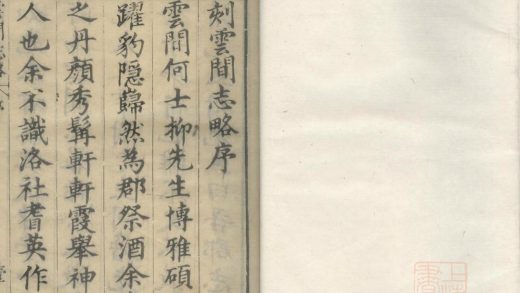 刻雲間志略序
雲間何士抑先生博雅碩
躍豹隱巋然為郡祭酒余
之丹顏秀髯軒軒霞舉神
人也余不識洛社耆英作
雲間志略